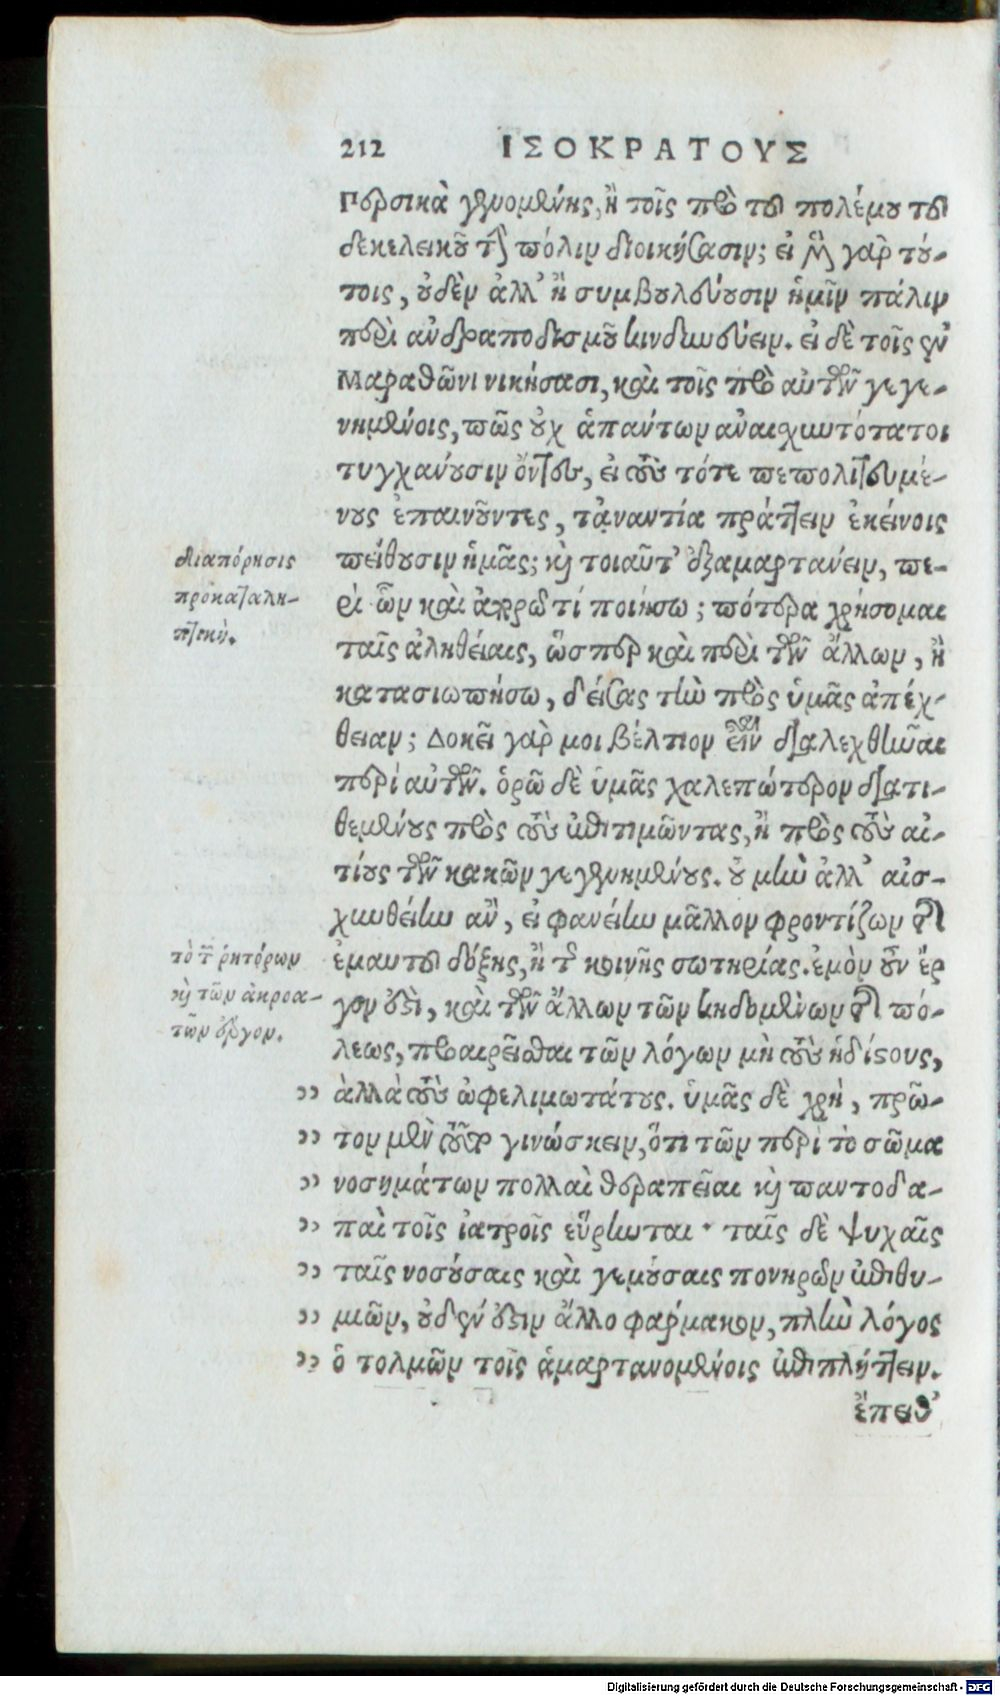 212 ΙΣΟΚΡΑΤΟΥΣ
Περσικὰ γενομένης, ἢ τοῖς πρὸ τοῦ πολέμου τοῦ
δεκελεικοῦ τὴν πόλιν διοικήσασιν; εἰ μὲν γὰρ τού-
τοις, οὐδὲν ἀλλ' ἢ συμβουλεύουσιν ἡμῖν πάλιν
περὶ ἀνδραποδισμοῦ κινδυνεύειν. εἰ δὲ τοῖς ἐν
Μαραθῶνι νικήσασι, καὶ τοῖς πρὸ αὐτῶν γεγε-
νημένοις, πῶς οὐχ ἁπάντων ἀναισχυντότατοι
τυγχάνουσιν ὄντες, εἰ τοὺς τότε πεπολιτευμέ-
νους ἐπαινοῦντες, τἀναντία πράττειν ἐκείνοις
πείθουσιν ἡμᾶς; καὶ τοιαῦτ' ἐξαμαρτάνειν, πε-
ρὶ ὧν καὶ ἀπορῶ τί ποιήσω; πότερα χρήσομαι
ταῖς ἀληθείαις, ὥσπερ καὶ περὶ τῶν ἄλλων, ἢ
κατασιωπήσω, δείσας τὴν πρὸς ὑμᾶς ἀπέχ-
θειαν; Δοκεῖ γὰρ μοι βέλτιον εἶναι διαλεχθῆναι
περὶ αὐτῶν. ὁρῶ δὲ ὑμᾶς χαλεπώτερον διατι-
θεμένους πρὸς τοὺς ἐπιτιμῶντας, ἢ πρὸς τοὺς αἰ-
τίους τῶν κακῶν γεγενημένους. οὐ μὴν ἀλλ' αἰσ-
χυνθείην ἂν, εἰ φανείην μᾶλλον φροντίζων τῆς
ἐμαυτοῦ δόξης, ἢ τῆς κοινῆς σωτηρίας. ἐμὸν οὖν ἔρ
γον ἐστὶ, καὶ τῶν ἄλλων τῶν κηδομένων τῆς πό-
λεως, προαιρεῖσθαι τῶν λόγων μὴ τοὺς ἡδίστους,
ἀλλὰ τοὺς ὠφελιμωτάτους. ὑμᾶς δὲ χρὴ, πρῶ-
τον μὲν τοῦτο γινώσκειν, ὅτι τῶν περὶ τὸ σῶμα
νοσημάτων πολλαὶ θεραπεῖαι καὶ παντοδα-
παὶ τοῖς ἰατροῖς εὕρηνται · ταῖς δὲ ψυχαῖς
ταῖς νοσούσαις καὶ γεμούσαις πονηρῶν ἐπιθυ-
μιῶν, οὐδέν ἐστιν ἄλλο φάρμακον, πλὴν λόγος
ὁ τολμῶν τοῖς ἁμαρτανομένοις ἐπιπλήττειν.
ἔπειθ'
διαπόρησις
προκαταλη-
πτική.
τὸ τῶν ῥητόρων
καὶ τῶν ἀκροα-
τῶν ἔργον.
Digitalisierung gefördert durch die Deutsche Forschungsgemeinschaft - DFG